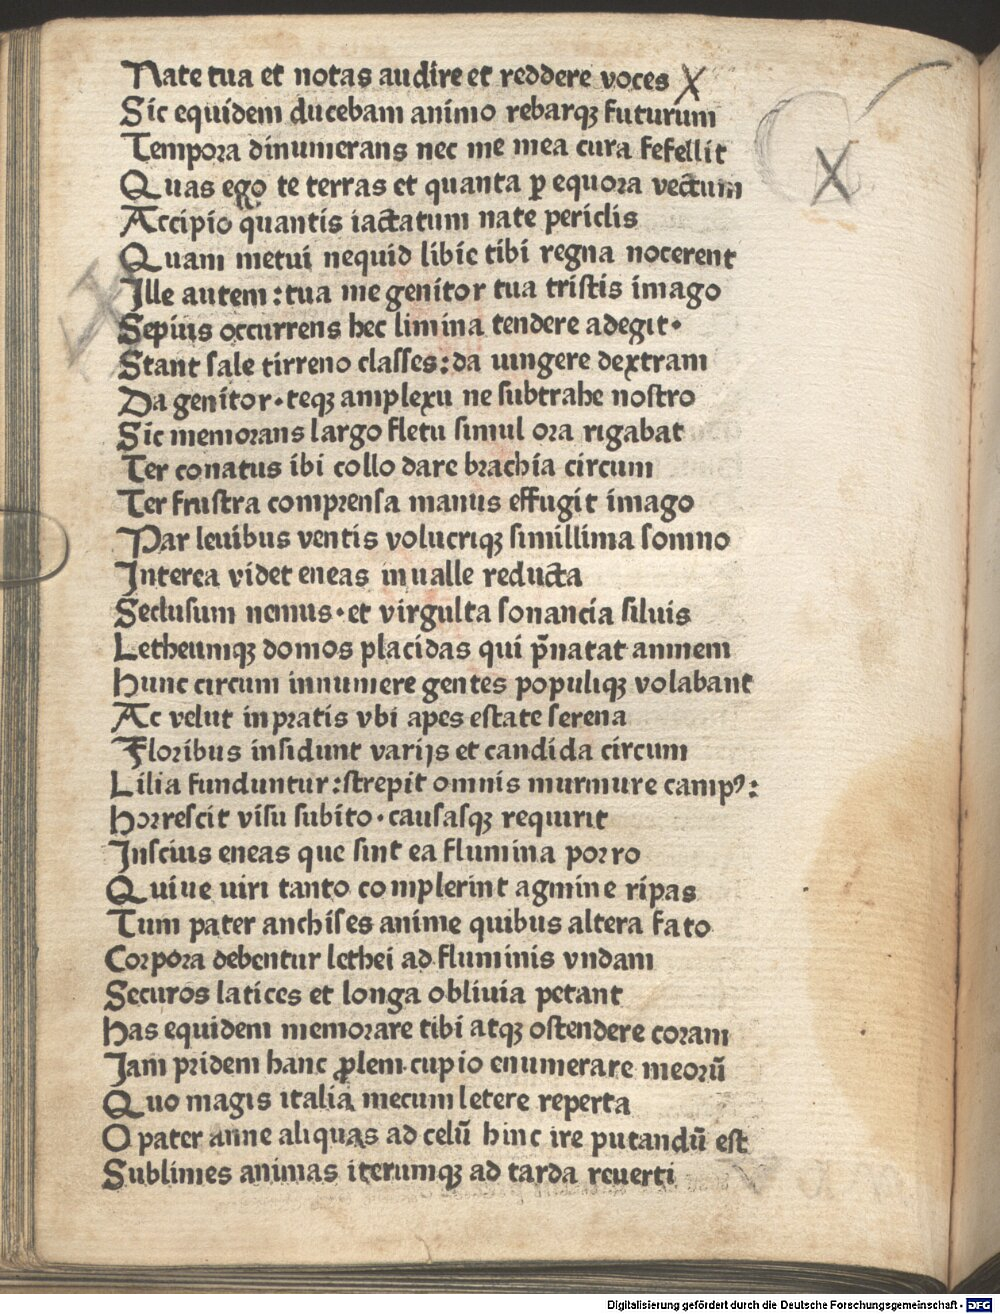 Nate tua et notas audire et reddere voces X
Sic equidem ducebam animo rebarqꝫ futurum
Tempora dinumerans nec me mea cura fefellit
Quas ego te terras et quanta ꝑ equora vectum X
Accipio quantis iactatum nate periclis
Quam metui nequid libic tibi regna nocerent
Ille autem : tua me genitor tua tristis imago
Sepius occurrens hec limina tendere adegit ·
Stant sale tirreno classes : da uingere dextram
Da genitor · teqꝫ amplexu ne subtrahe nostro
Sic memorans largo fletu simul ora rigabat
Ter conatus ibi collo dare brachia circum
Ter frustra comprensa manus effugit imago
Par leuibus ventis volucriqꝫ simillima somno
Interea videt eneas in ualle reducta
Seclusum nemus · et virgulta sonancia siluis
Letheumqꝫ domos placidas qui p̃natat amnem
Hunc circum innumere gentes populiqꝫ volabant
Ac velut in pratis vbi apes estate serena
Floribus insidunt varijs et candida circum
Lilia funduntur : strepit omnis murmure campꝰ :
Horrescit visu subito · causasqꝫ requirit
Inscius eneas que sint ea flumina porro
Quiue uiri tanto complerint agmine ripas
Tum pater anchises anime quibus altera fato
Corpora debentur lethei ad fluminis vndam
Securos latices et longa obliuia petant
Has equidem memorare tibi atqꝫ ostendere coram
Iam pridem hanc ꝓlem cupio enumerare meorū
Quo magis italia mecum letere reperta
O pater anne aliquas ad celū hinc ire putandū est
Sublimes animas iterumqꝫ ad tarda reuerti
Digitalisierung gefördert durch die Deutsche Forschungsgemeinschaft - DFG